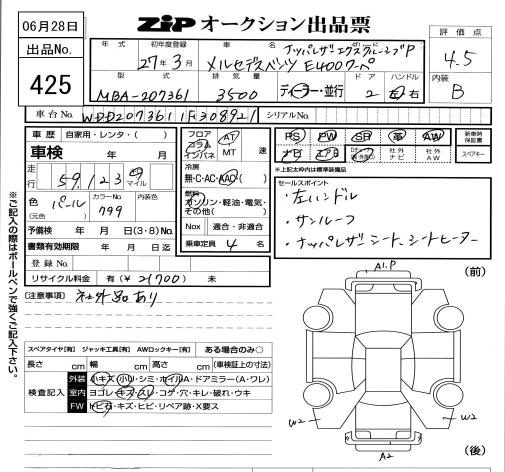 06月28日
ZiP オークション出品票
出品No.
425
年式 初年度登録 車名 グレード
27年3月 メルセデスベンツ E400クーペ ナッパレザーエクスクルーシブP
型式 排気量 ドア ハンドル
MBA-207361 3500 ディーラー・並行 2 左右
評価点
4.5
内装
B
車台No. WDD2073611F308921 シリアルNo.
車歴 自家用・レンタ・( )
車検 年 月
走行 59,123 マイル
色 (元色) パール カラーNo. 799 内装色
予備検 年 月 日(3・8)
書類有効期限 年 月 日
登録No.
リサイクル料金 有(¥21700) 未
フロア コラム インパネ AT MT 速
冷房
無・C・AC・AAC
燃料
ガソリン・軽油・電気・その他( )
Nox 適合・非適合
乗車定員 4 名
PS PW SR 革 AW
ナビ エアB 社外ナビ 社外AW
新車時保証書
スペアキー
*上記太枠内は標準装備品
セールスポイント
・左ハンドル
・サンルーフ
・ナッパレザーシート、シートヒーター
注意事項 社外品あり
※ご記入の際はボールペンで強くご記入下さい。
スペアタイヤ[有] ジャッキ工具[有] AWロックキー[有] ある場合のみ〇
長さ cm 幅 cm 高さ cm (車検証上の寸法)
検査記入
外装 小キズ・小凹・シミ・ホイルA・ドアミラー(A・ワレ)
室内 ヨゴレ・キズ・スレ・コゲ・穴・キレ・破れ・ウキ
FW トビ石・キズ・ヒビ・リペア跡・X要ス
(前)
A1.P
W2
W2
A2
(後)